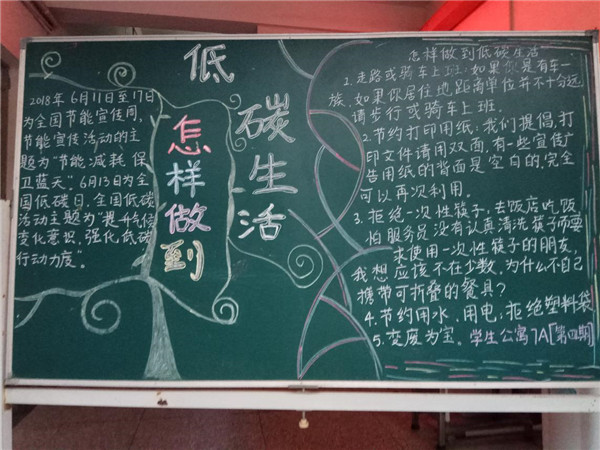 低
碳
生
活
怎
样
做
到
2018年6月11日至17日
为全国节能宣传周,
节能宣传活动的主
题为"节能减耗 保
卫蓝天"。6月13日为全
国低碳日,全国低碳
活动主题为"提升气候
变化意识,强化低碳
行动力度"。
怎样做到低碳生活
1.走路或骑车上班:如果你是有车一
族,如果你居住地距离单位并不十分远
请步行或骑车上班.
2.节约打印用纸.我们提倡,打
印文件请用双面,有一些宣传广
告用纸的背面是空白的,完全
可以再次利用。
3.拒绝一次性筷子,去饭店吃饭
怕服务员没有认真清洗筷子而要
求使用一次性筷子的朋友,
我想应该不在少数,为什么不自己
携带可折叠的餐具?
4.节约用水、用电;拒绝塑料袋
5.变废为宝。学生公寓7A[第四期]